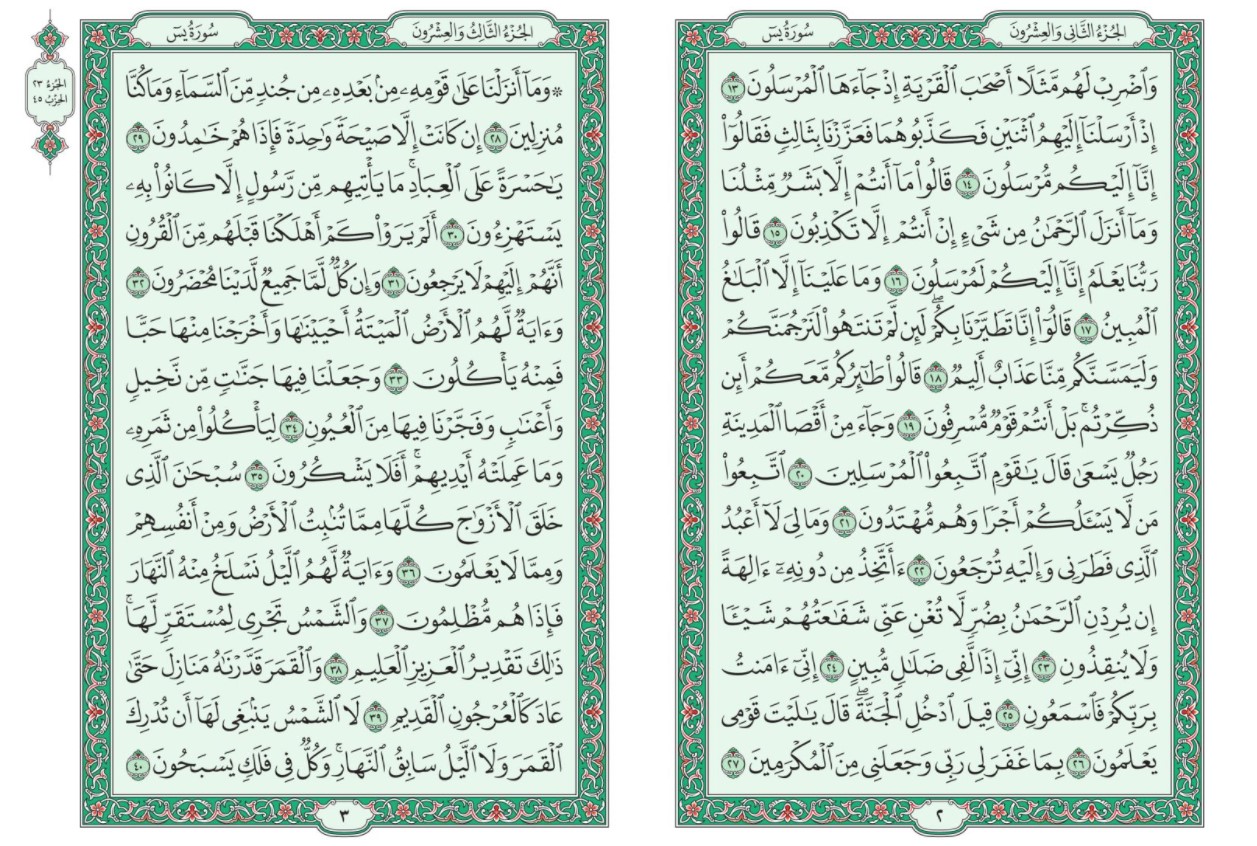 الجُزْءُ الثَّانِي وَالعِشْرُونَ
سُورَةُ يس
وَٱضْرِبْ لَهُم مَّثَلًا أَصْحَٰبَ ٱلْقَرْيَةِ إِذْ جَآءَهَا ٱلْمُرْسَلُونَ ١٣
إِذْ أَرْسَلْنَآ إِلَيْهِمُ ٱثْنَيْنِ فَكَذَّبُوهُمَا فَعَزَّزْنَا بِثَالِثٍ فَقَالُوٓا۟
إِنَّآ إِلَيْكُم مُّرْسَلُونَ ١٤ قَالُوا۟ مَآ أَنتُمْ إِلَّا بَشَرٌ مِّثْلُنَا
وَمَآ أَنزَلَ ٱلرَّحْمَٰنُ مِن شَىْءٍ إِنْ أَنتُمْ إِلَّا تَكْذِبُونَ ١٥ قَالُوا۟
رَبُّنَا يَعْلَمُ إِنَّآ إِلَيْكُمْ لَمُرْسَلُونَ ١٦ وَمَا عَلَيْنَآ إِلَّا ٱلْبَلَٰغُ
ٱلْمُبِينُ ١٧ قَالُوٓا۟ إِنَّا تَطَيَّرْنَا بِكُمْ ۖ لَئِن لَّمْ تَنتَهُوا۟ لَنَرْجُمَنَّكُمْ
وَلَيَمَسَّنَّكُم مِّنَّا عَذَابٌ أَلِيمٌ ١٨ قَالُوا۟ طَٰٓئِرُكُم مَّعَكُمْ ۚ أَئِن
ذُكِّرْتُم ۚ بَلْ أَنتُمْ قَوْمٌ مُّسْرِفُونَ ١٩ وَجَآءَ مِنْ أَقْصَا ٱلْمَدِينَةِ
رَجُلٌ يَسْعَىٰ قَالَ يَٰقَوْمِ ٱتَّبِعُوا۟ ٱلْمُرْسَلِينَ ٢٠ ٱتَّبِعُوا۟
مَن لَّا يَسْـَٔلُكُمْ أَجْرًا وَهُم مُّهْتَدُونَ ٢١ وَمَا لِىَ لَآ أَعْبُدُ
ٱلَّذِى فَطَرَنِى وَإِلَيْهِ تُرْجَعُونَ ٢٢ ءَأَتَّخِذُ مِن دُونِهِۦٓ ءَالِهَةً
إِن يُرِدْنِ ٱلرَّحْمَٰنُ بِضُرٍّ لَّا تُغْنِ عَنِّى شَفَٰعَتُهُمْ شَيْـًٔا
وَلَا يُنقِذُونِ ٢٣ إِنِّىٓ إِذًا لَّفِى ضَلَٰلٍ مُّبِينٍ ٢٤ إِنِّىٓ ءَامَنتُ
بِرَبِّكُمْ فَٱسْمَعُونِ ٢٥ قِيلَ ٱدْخُلِ ٱلْجَنَّةَ ۖ قَالَ يَٰلَيْتَ قَوْمِى
يَعْلَمُونَ ٢٦ بِمَا غَفَرَ لِى رَبِّى وَجَعَلَنِى مِنَ ٱلْمُكْرَمِينَ ٢٧
٢
الجُزْءُ الثَّالِثُ وَالعِشْرُونَ
سُورَةُ يس
۞ وَمَآ أَنزَلْنَا عَلَىٰ قَوْمِهِۦ مِنۢ بَعْدِهِۦ مِن جُندٍ مِّنَ ٱلسَّمَآءِ وَمَا كُنَّا
مُنزِلِينَ ٢٨ إِن كَانَتْ إِلَّا صَيْحَةً وَٰحِدَةً فَإِذَا هُمْ خَٰمِدُونَ ٢٩
يَٰحَسْرَةً عَلَى ٱلْعِبَادِ ۚ مَا يَأْتِيهِم مِّن رَّسُولٍ إِلَّا كَانُوا۟ بِهِۦ
يَسْتَهْزِءُونَ ٣٠ أَلَمْ يَرَوْا۟ كَمْ أَهْلَكْنَا قَبْلَهُم مِّنَ ٱلْقُرُونِ
أَنَّهُمْ إِلَيْهِمْ لَا يَرْجِعُونَ ٣١ وَإِن كُلٌّ لَّمَّا جَمِيعٌ لَّدَيْنَا مُحْضَرُونَ ٣٢
وَءَايَةٌ لَّهُمُ ٱلْأَرْضُ ٱلْمَيْتَةُ أَحْيَيْنَٰهَا وَأَخْرَجْنَا مِنْهَا حَبًّا
فَمِنْهُ يَأْكُلُونَ ٣٣ وَجَعَلْنَا فِيهَا جَنَّٰتٍ مِّن نَّخِيلٍ
وَأَعْنَٰبٍ وَفَجَّرْنَا فِيهَا مِنَ ٱلْعُيُونِ ٣٤ لِيَأْكُلُوا۟ مِن ثَمَرِهِۦ
وَمَا عَمِلَتْهُ أَيْدِيهِمْ ۖ أَفَلَا يَشْكُرُونَ ٣٥ سُبْحَٰنَ ٱلَّذِى
خَلَقَ ٱلْأَزْوَٰجَ كُلَّهَا مِمَّا تُنۢبِتُ ٱلْأَرْضُ وَمِنْ أَنفُسِهِمْ
وَمِمَّا لَا يَعْلَمُونَ ٣٦ وَءَايَةٌ لَّهُمُ ٱلَّيْلُ نَسْلَخُ مِنْهُ ٱلنَّهَارَ
فَإِذَا هُم مُّظْلِمُونَ ٣٧ وَٱلشَّمْسُ تَجْرِى لِمُسْتَقَرٍّ لَّهَا ۚ
ذَٰلِكَ تَقْدِيرُ ٱلْعَزِيزِ ٱلْعَلِيمِ ٣٨ وَٱلْقَمَرَ قَدَّرْنَٰهُ مَنَازِلَ حَتَّىٰ
عَادَ كَٱلْعُرْجُونِ ٱلْقَدِيمِ ٣٩ لَا ٱلشَّمْسُ يَنۢبَغِى لَهَآ أَن تُدْرِكَ
ٱلْقَمَرَ وَلَا ٱلَّيْلُ سَابِقُ ٱلنَّهَارِ ۚ وَكُلٌّ فِى فَلَكٍ يَسْبَحُونَ ٤٠
٣
الجُزْءُ ٢٣
الحِزْبُ ٤٥